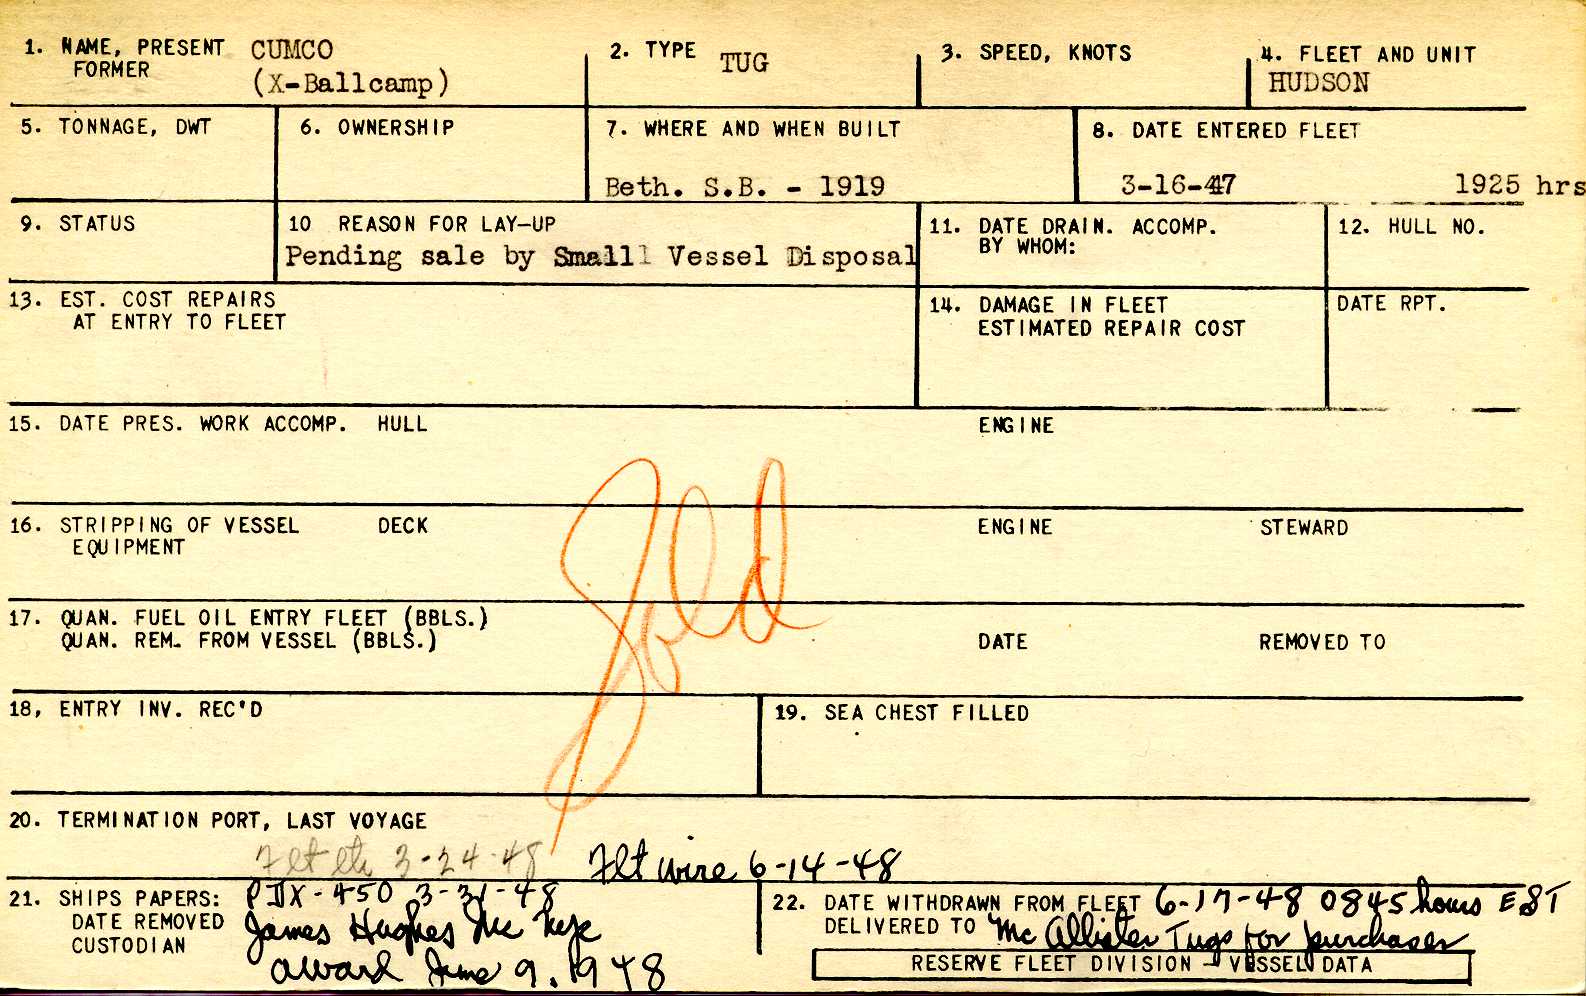 1. NAME, PRESENT CUMCO
FORMER (X-Ballcamp)
2. TYPE TUG
3. SPEED, KNOTS
4. FLEET AND UNIT
HUDSON
5. TONNAGE, DWT
6. OWNERSHIP
7. WHERE AND WHEN BUILT
Beth. S.B. - 1919
8. DATE ENTERED FLEET
3-16-47 1925 hrs
9. STATUS
10 REASON FOR LAY-UP
Pending sale by Small Vessel Disposal
11. DATE DRAIN. ACCOMP.
BY WHOM:
12. HULL NO.
13. EST. COST REPAIRS
AT ENTRY TO FLEET
14. DAMAGE IN FLEET
ESTIMATED REPAIR COST
DATE RPT.
15. DATE PRES. WORK ACCOMP. HULL ENGINE
Sold
16. STRIPPING OF VESSEL DECK ENGINE STEWARD
EQUIPMENT
17. QUAN. FUEL OIL ENTRY FLEET (BBLS.)
QUAN. REM. FROM VESSEL (BBLS.) DATE REMOVED TO
18, ENTRY INV. REC'D
19. SEA CHEST FILLED
20. TERMINATION PORT, LAST VOYAGE
Flt ltr 3-24-48 Flt wire 6-14-48
21. SHIPS PAPERS: PDX-450 3-31-48
DATE REMOVED James Hughes Inc
CUSTODIAN
award June 9, 1948
22. DATE WITHDRAWN FROM FLEET 6-17-48 0845 hours EST
DELIVERED TO McAllister Tugs for purchaser
RESERVE FLEET DIVISION - VESSEL DATA